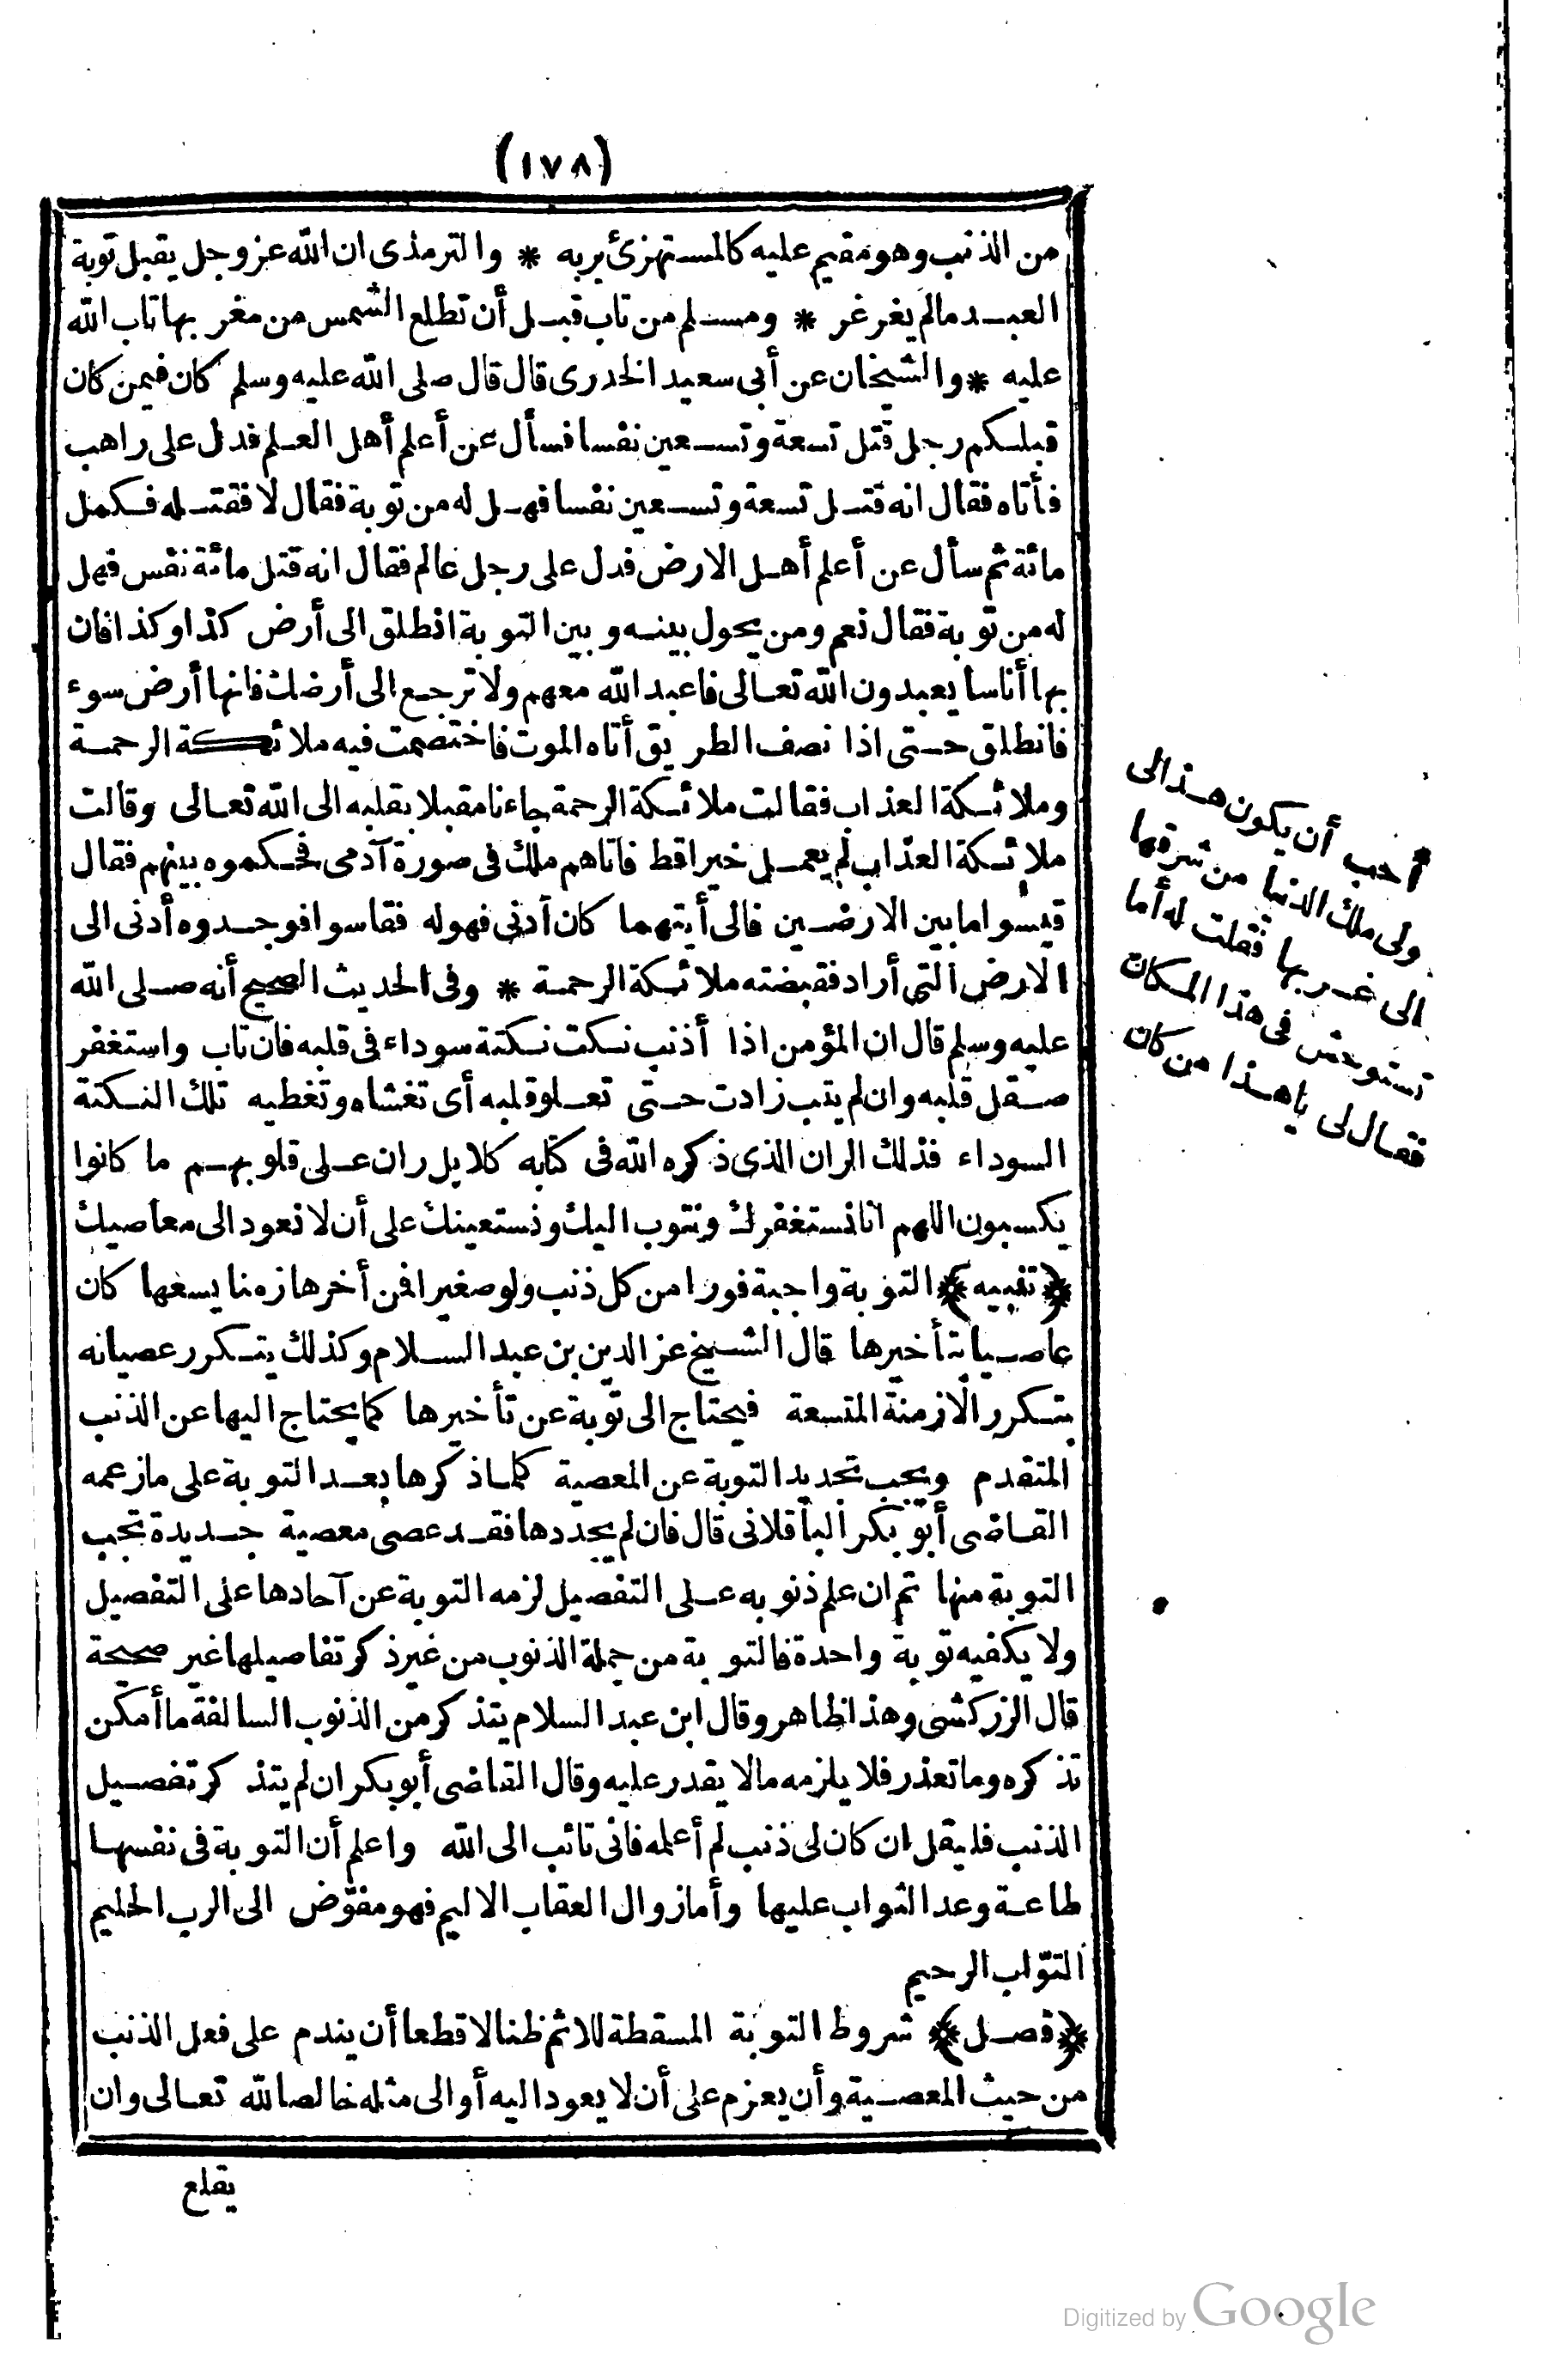 (١٧٨)
من الذنب وهو مقيم عليه كالمستهزئ بربه * والترمذى ان الله عز وجل يقبل توبة
العبد مالم يغرغر * ومسلم من تاب قبل أن تطلع الشمس من مغربها تاب الله
عليه * والشيخان عن أبى سعيد الخدرى قال قال صلى الله عليه وسلم كان فيمن كان
قبلكم رجل قتل تسعة وتسعين نفسا فسأل عن أعلم أهل العلم فدل على راهب
فأتاه فقال انه قتل تسعة وتسعين نفسا فهل له من توبة فقال لا فقتله فكمل
مائة ثم سأل عن أعلم أهل الارض فدل على رجل عالم فقال انه قتل مائة نفس فهل
له من توبة فقال نعم ومن يحول بينه وبين التوبة انطلق الى أرض كذا وكذا فان
بها أناسا يعبدون الله تعالى فاعبد الله معهم ولا ترجع الى أرضك فانها أرض سوء
فانطلق حتى اذا نصف الطريق أتاه الموت فاختصمت فيه ملائكة الرحمة
وملائكة العذاب فقالت ملائكة الرحمة جاءنا مقبلا بقلبه الى الله تعالى وقالت
ملائكة العذاب لم يعمل خيرا قط فاتاهم ملك فى صورة آدمى فحكموه بينهم فقال
قيسوا ما بين الارضين فالى أيتهما كان أدنى فهو له فقاسوا فوجدوه أدنى الى
الارض التى أراد فقبضته ملائكة الرحمة * وفى الحديث الصحيح أنه صلى الله
عليه وسلم قال ان المؤمن اذا أذنب نكت نكتة سوداء فى قلبه فان تاب واستغفر
صقل قلبه وان لم يتب زادت حتى تعلو قلبه أى تغشاه وتغطيه تلك النكتة
السوداء فذلك الران الذى ذكره الله فى كتابه كلا بل ران على قلوبهم ما كانوا
يكسبون اللهم انا نستغفرك ونتوب اليك ونستعينك على أن لا نعود الى معاصيك
﴿تنبيه﴾ التوبة واجبة فورا من كل ذنب ولو صغيرا فمن أخرها زمنا يسعها كان
عاصيا بتأخيرها قال الشيخ عز الدين بن عبد السلام وكذلك يتكرر عصيانه
بتكرر الازمنة المتسعة فيحتاج الى توبة عن تأخيرها كما يحتاج اليها عن الذنب
المتقدم ويجب تجديد التوبة عن المعصية كلما ذكرها بعد التوبة على ما زعمه
القاضى أبو بكر الباقلانى قال فان لم يجددها فقد عصى معصية جديدة تجب
التوبة منها ثم ان علم ذنوبه على التفصيل لزمه التوبة عن آحادها على التفصيل
ولا يكفيه توبة واحدة فالتوبة من جملة الذنوب من غير ذكر تفاصيلها غير صحيحة
قال الزركشى وهذا ظاهر وقال ابن عبد السلام يتذكر من الذنوب السالفة ما أمكن
تذكره وما تعذر فلا يلزمه مالا يقدر عليه وقال القاضى أبو بكر ان لم يتذكر تفصيل
الذنب فليقل ان كان لى ذنب لم أعلمه فانى تائب الى الله واعلم أن التوبة فى نفسها
طاعة وعد الثواب عليها وأما زوال العقاب الاليم فهو مفوّض الى الرب الحليم
التوّاب الرحيم
﴿فصل﴾ شروط التوبة المسقطة للاثم ظنا لا قطعا أن يندم على فعل الذنب
من حيث المعصية وأن يعزم على أن لا يعود اليه أو الى مثله خالصا لله تعالى وان
يقلع
أحب أن يكون هذا لى
ولى ملك الدنيا من شرقها
الى غربها فقلت له أما
تستوحش فى هذا المكان
فقال لى يا هذا من كان
Digitized by Google